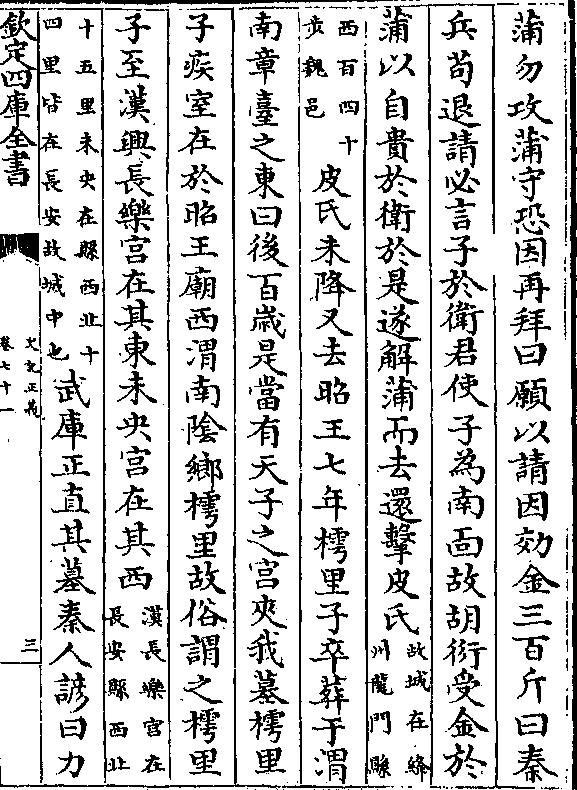 蒲勿攻蒲守恐因再拜曰願以請因効金三百斤曰秦
兵苟退請必言子於衛君使子為南面故胡衍受金於
蒲以自貴於衛於是遂解蒲而去還擊皮氏故城在絳州龍門縣
西百四十步魏邑皮氏未降又去昭王七年樗里子卒葬于渭
南章臺之東曰後百歲是當有天子之宫夾我墓樗里
子疾室在於昭王廟西渭南陰鄉樗里故俗謂之樗里
子至漢興長樂宫在其東未央宫在其西漢長樂宫在長安縣西北
十五里未央在縣西北十四里皆在長安故城中也武庫正直其墓秦人諺曰力
欽定四庫全書
史記正義
卷七十一
三